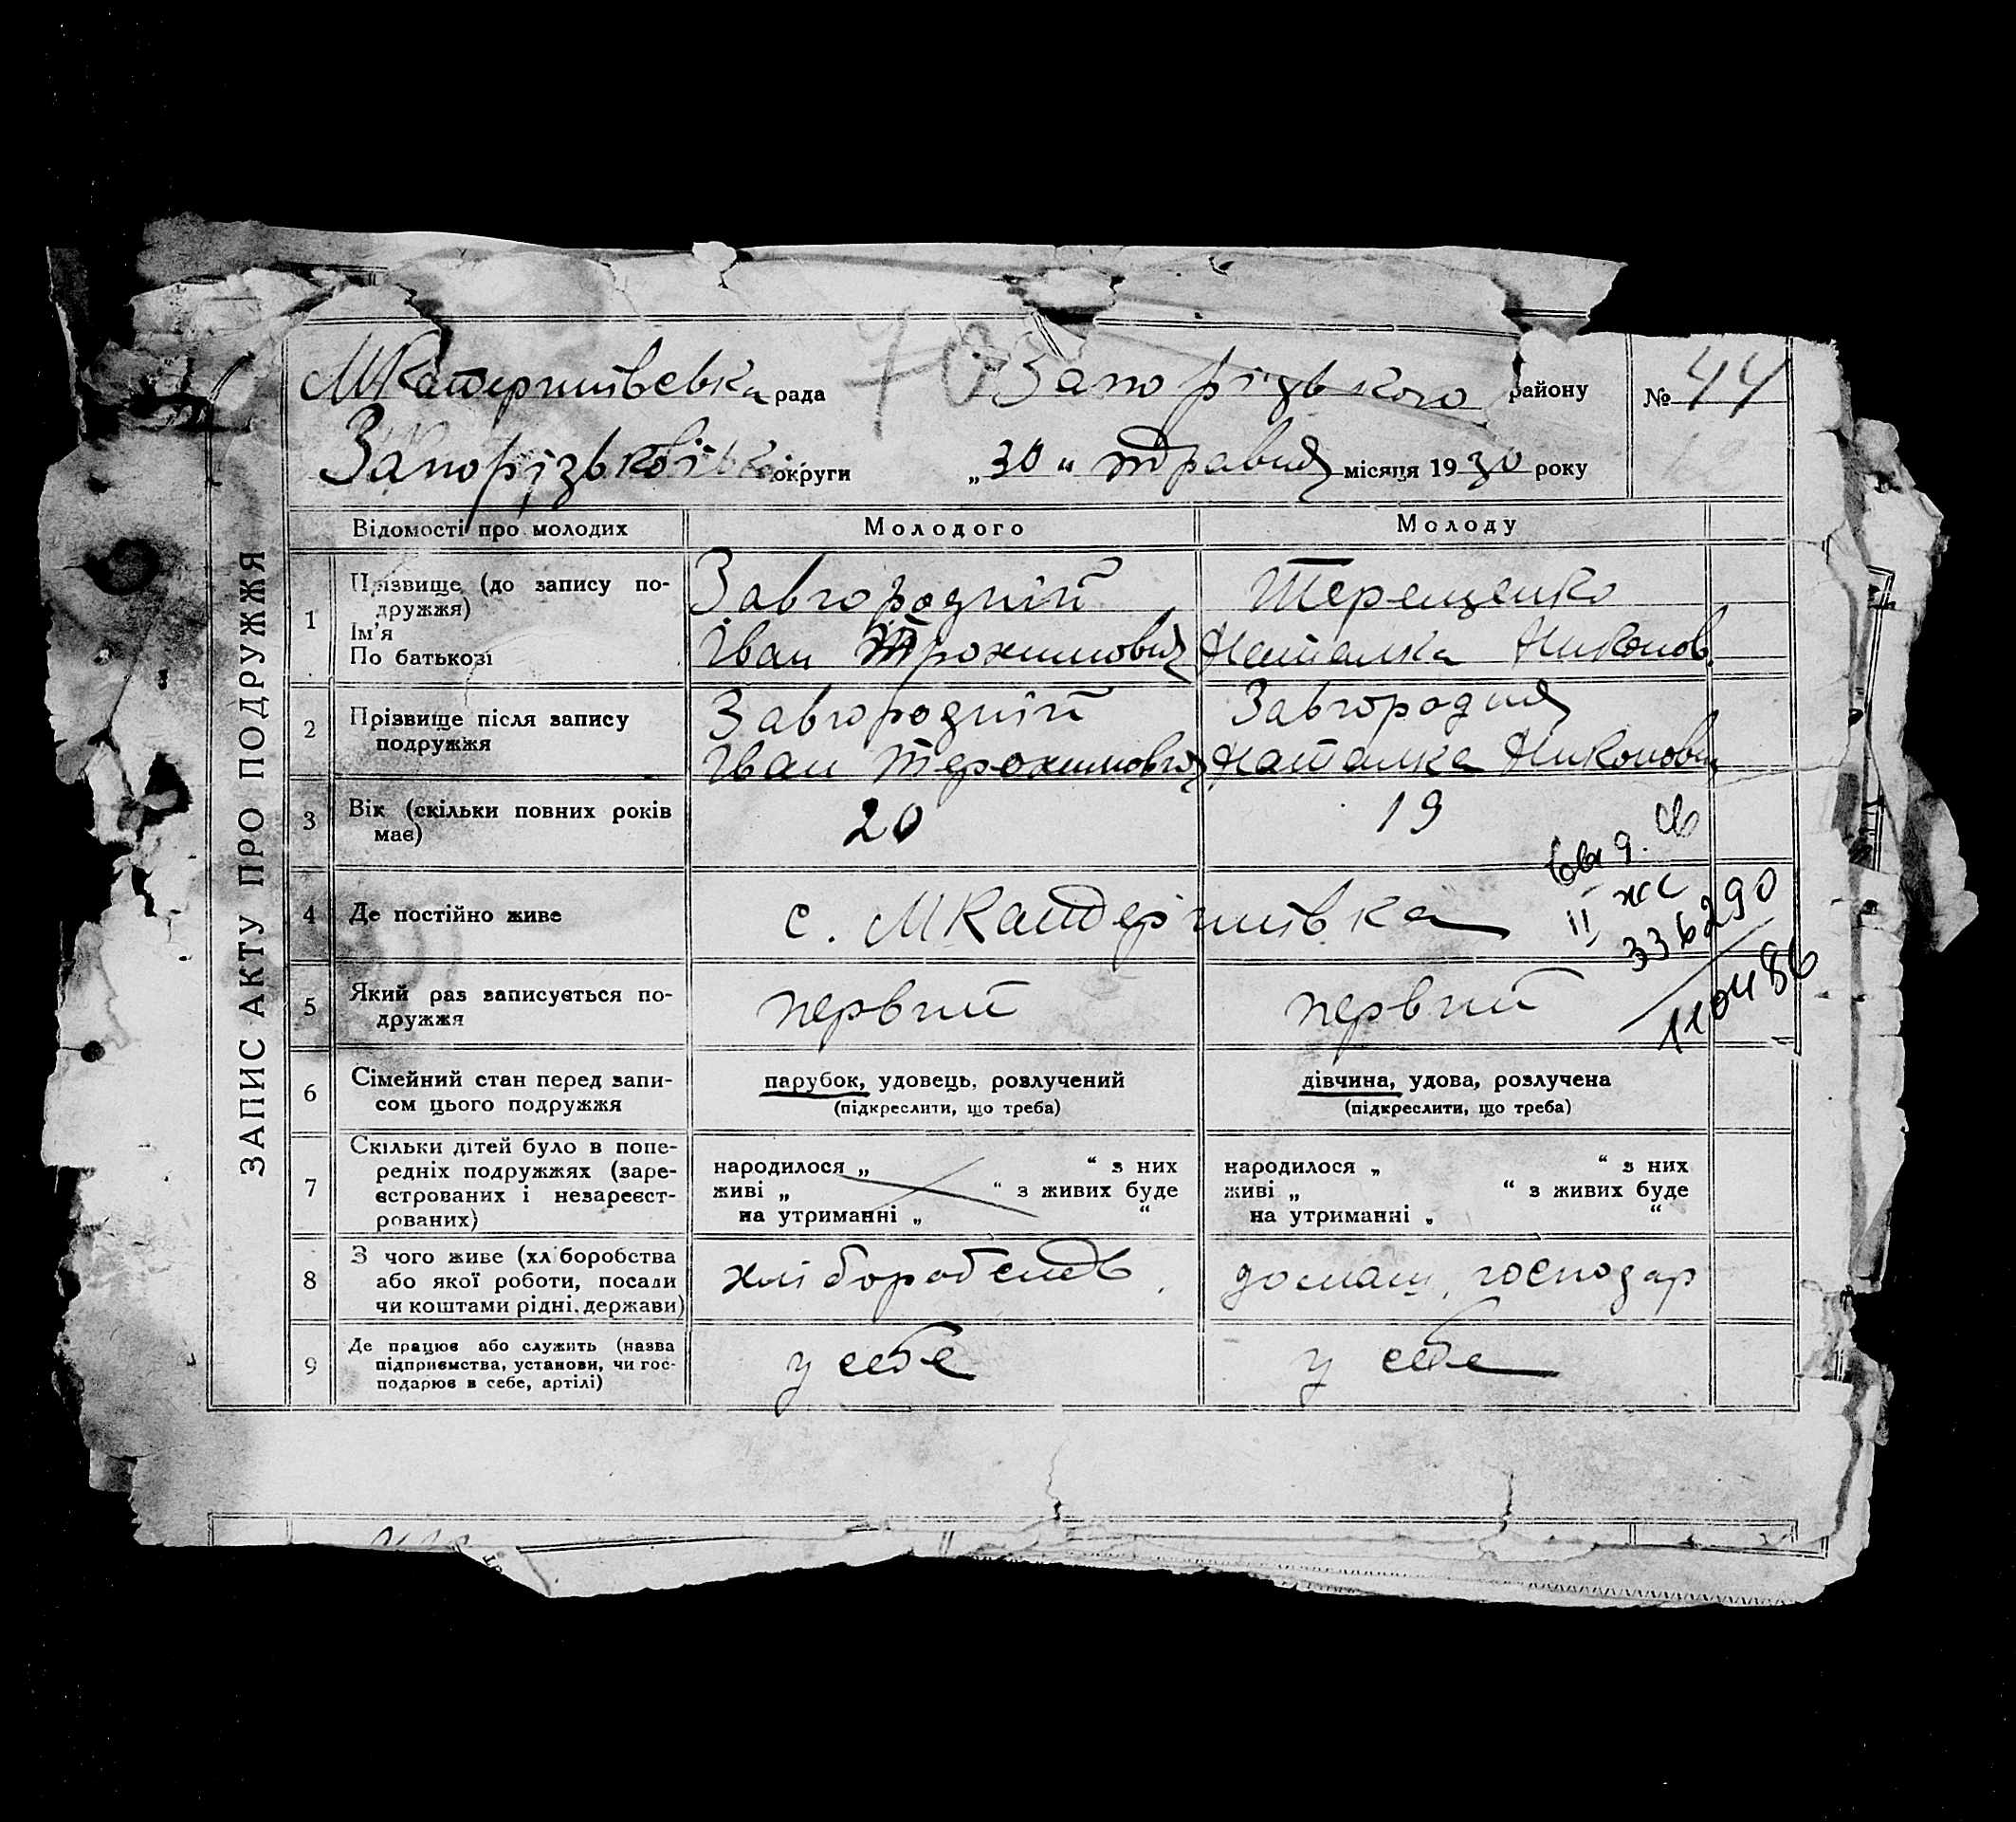 МКатеринівська рада 70 Запорізького району № 44
Запорізької округи „30" травня місяця 1930 року
ЗАПИС АКТУ ПРО ПОДРУЖЖЯ
Відомості про молодих Молодого Молоду
1 Прізвище (до запису подружжя) Завгородній Терещенко
Ім'я
По батькові Іван Трохимович Наталка Никонов.
2 Прізвище після запису подружжя Завгородній Завгородня
Іван Терохимович Наталка Никоновн
3 Вік (скільки повних років має) 20 19
4 Де постійно живе с. МКатерінівка
II жс
336290
110486
5 Який раз записується подружжя первий первий
6 Сімейний стан перед записом цього подружжя парубок, удовець, розлучений дівчина, удова, розлучена
(підкреслити, що треба) (підкреслити, що треба)
7 Скільки дітей було в попередніх подружжях (зареєстрованих і незареєстрованих)
народилося „ “ з них народилося „ “ з них
живі „ “ з живих буде живі „ “ з живих буде
на утриманні „ “ на утриманні „ “
8 З чого живе (хліборобства або якої роботи, посади чи коштами рідні, держави) хліборобств домаш. господар
9 Де працює або служить (назва підприємства, установи, чи господарює в себе, артілі) у себе у себе